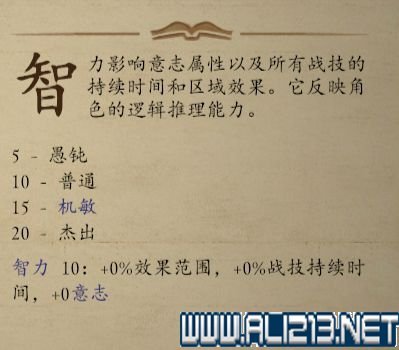 智力影响意志属性以及所有战技的
持续时间和区域效果。它反映角
色的逻辑推理能力。
5 - 愚钝
10 - 普通
15 - 机敏
20 - 杰出
智力 10：+0%效果范围，+0%战技持续时
间，+0意志
WWW.ALI213.NET